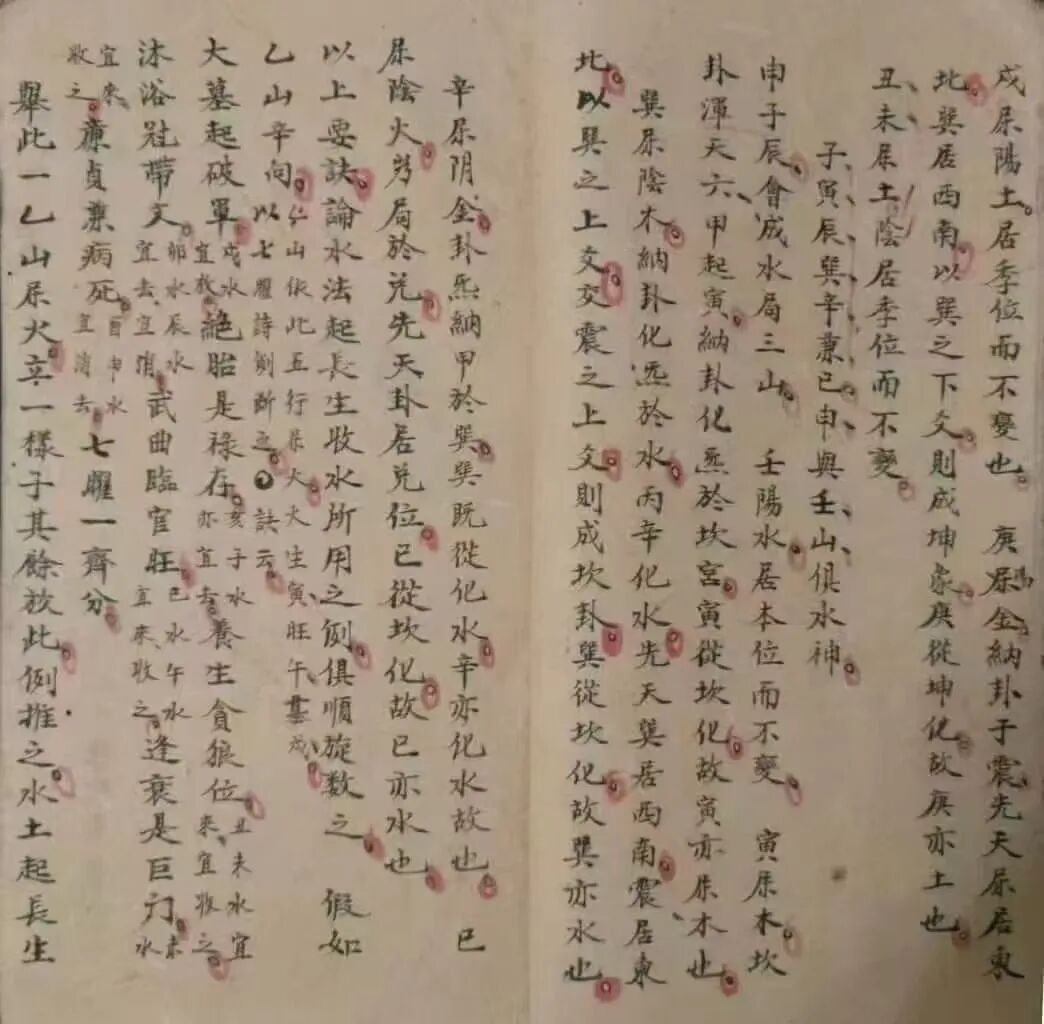 戌属陽土居季位而不變也 庚属金納卦于震先天属居東
北巽居西南以巽之下爻則成坤象庚從坤化故庚亦土也
丑未属土陰居季位而不變
子寅辰巽辛兼巳申與壬山俱水神
申子辰會成水局三山 壬陽水居本位而不變 寅属木坎
卦渾天六甲起寅納卦化炁於坎宮寅從坎化故寅亦属木也
巽属陰木納卦化炁於水丙辛化水先天巽居西南震居東
北以巽之上爻交震之上爻則成坎卦巽從坎化故巽亦水也
辛属阴金卦炁納甲於巽巽既從化水辛亦化水故也 巳
属陰火为局於兌先天卦居兌位巳從坎化故巳亦水也
以上要訣論水法起長生收水所用之例俱順旋数之 假如
乙山辛向仁山依此五行属火火生寅旺午墓戌以七曜詩例断之訣云
大墓起破軍戌水宜放絕胎是祿存亥子水亦宜去養生貪狼位丑未水宜來宜收之
沐浴冠帶文卯水辰水宜去宜消武曲臨官旺巳水午水宜來收之逢衰是巨门未水
宜來收之廉貞兼病死酉申水宜消去七曜一齊分
舉此一乙山属火立一樣子其餘放此例推之水土起長生